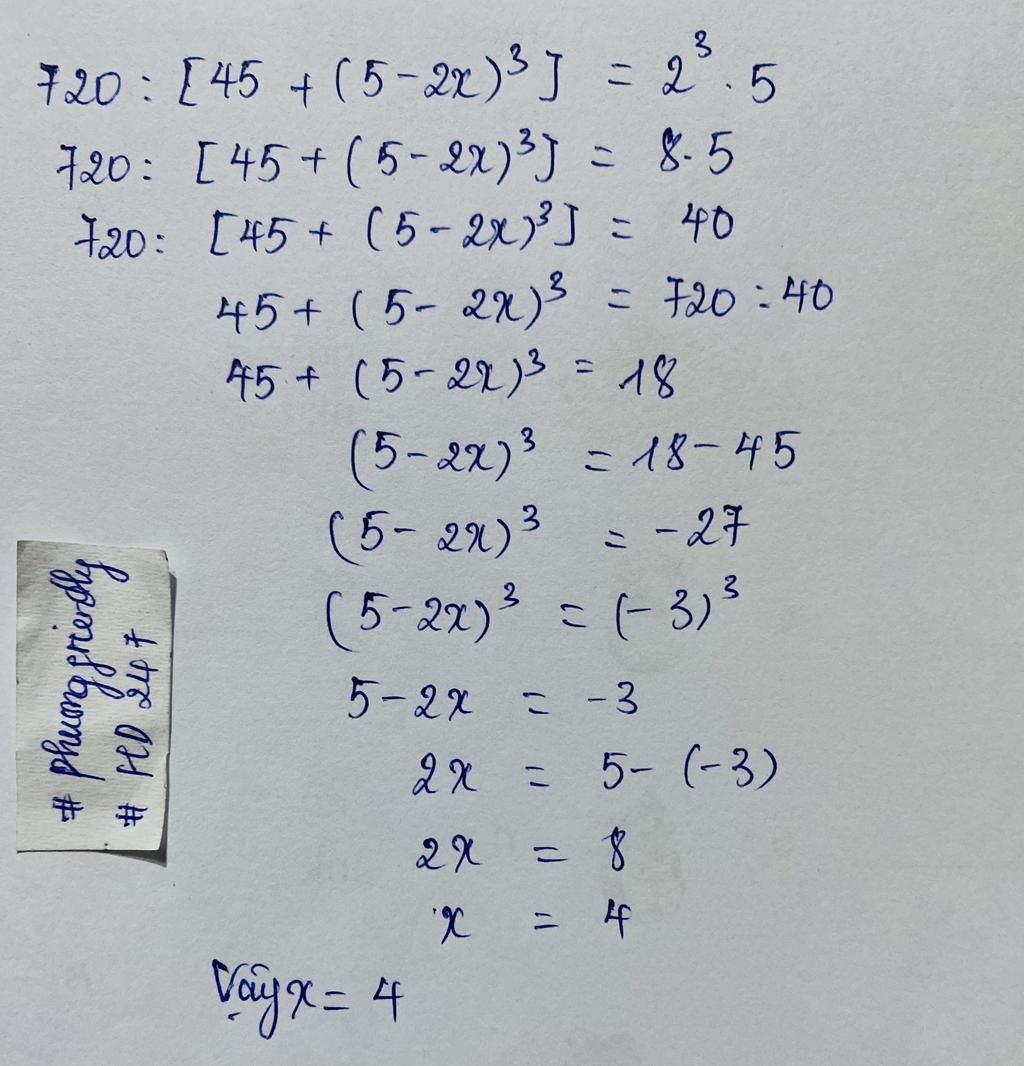 720 : [45 + (5-2x)³] = 2³ . 5
720 : [45 + (5-2x)³] = 8.5
720 : [45 + (5-2x)³] = 40
45 + (5-2x)³ = 720 : 40
45 + (5-2x)³ = 18
(5-2x)³ = 18 - 45
(5-2x)³ = -27
(5-2x)³ = (-3)³
5-2x = -3
2x = 5- (-3)
2x = 8
x = 4
Vậy x = 4
# phuonggfriendly
# HD 247